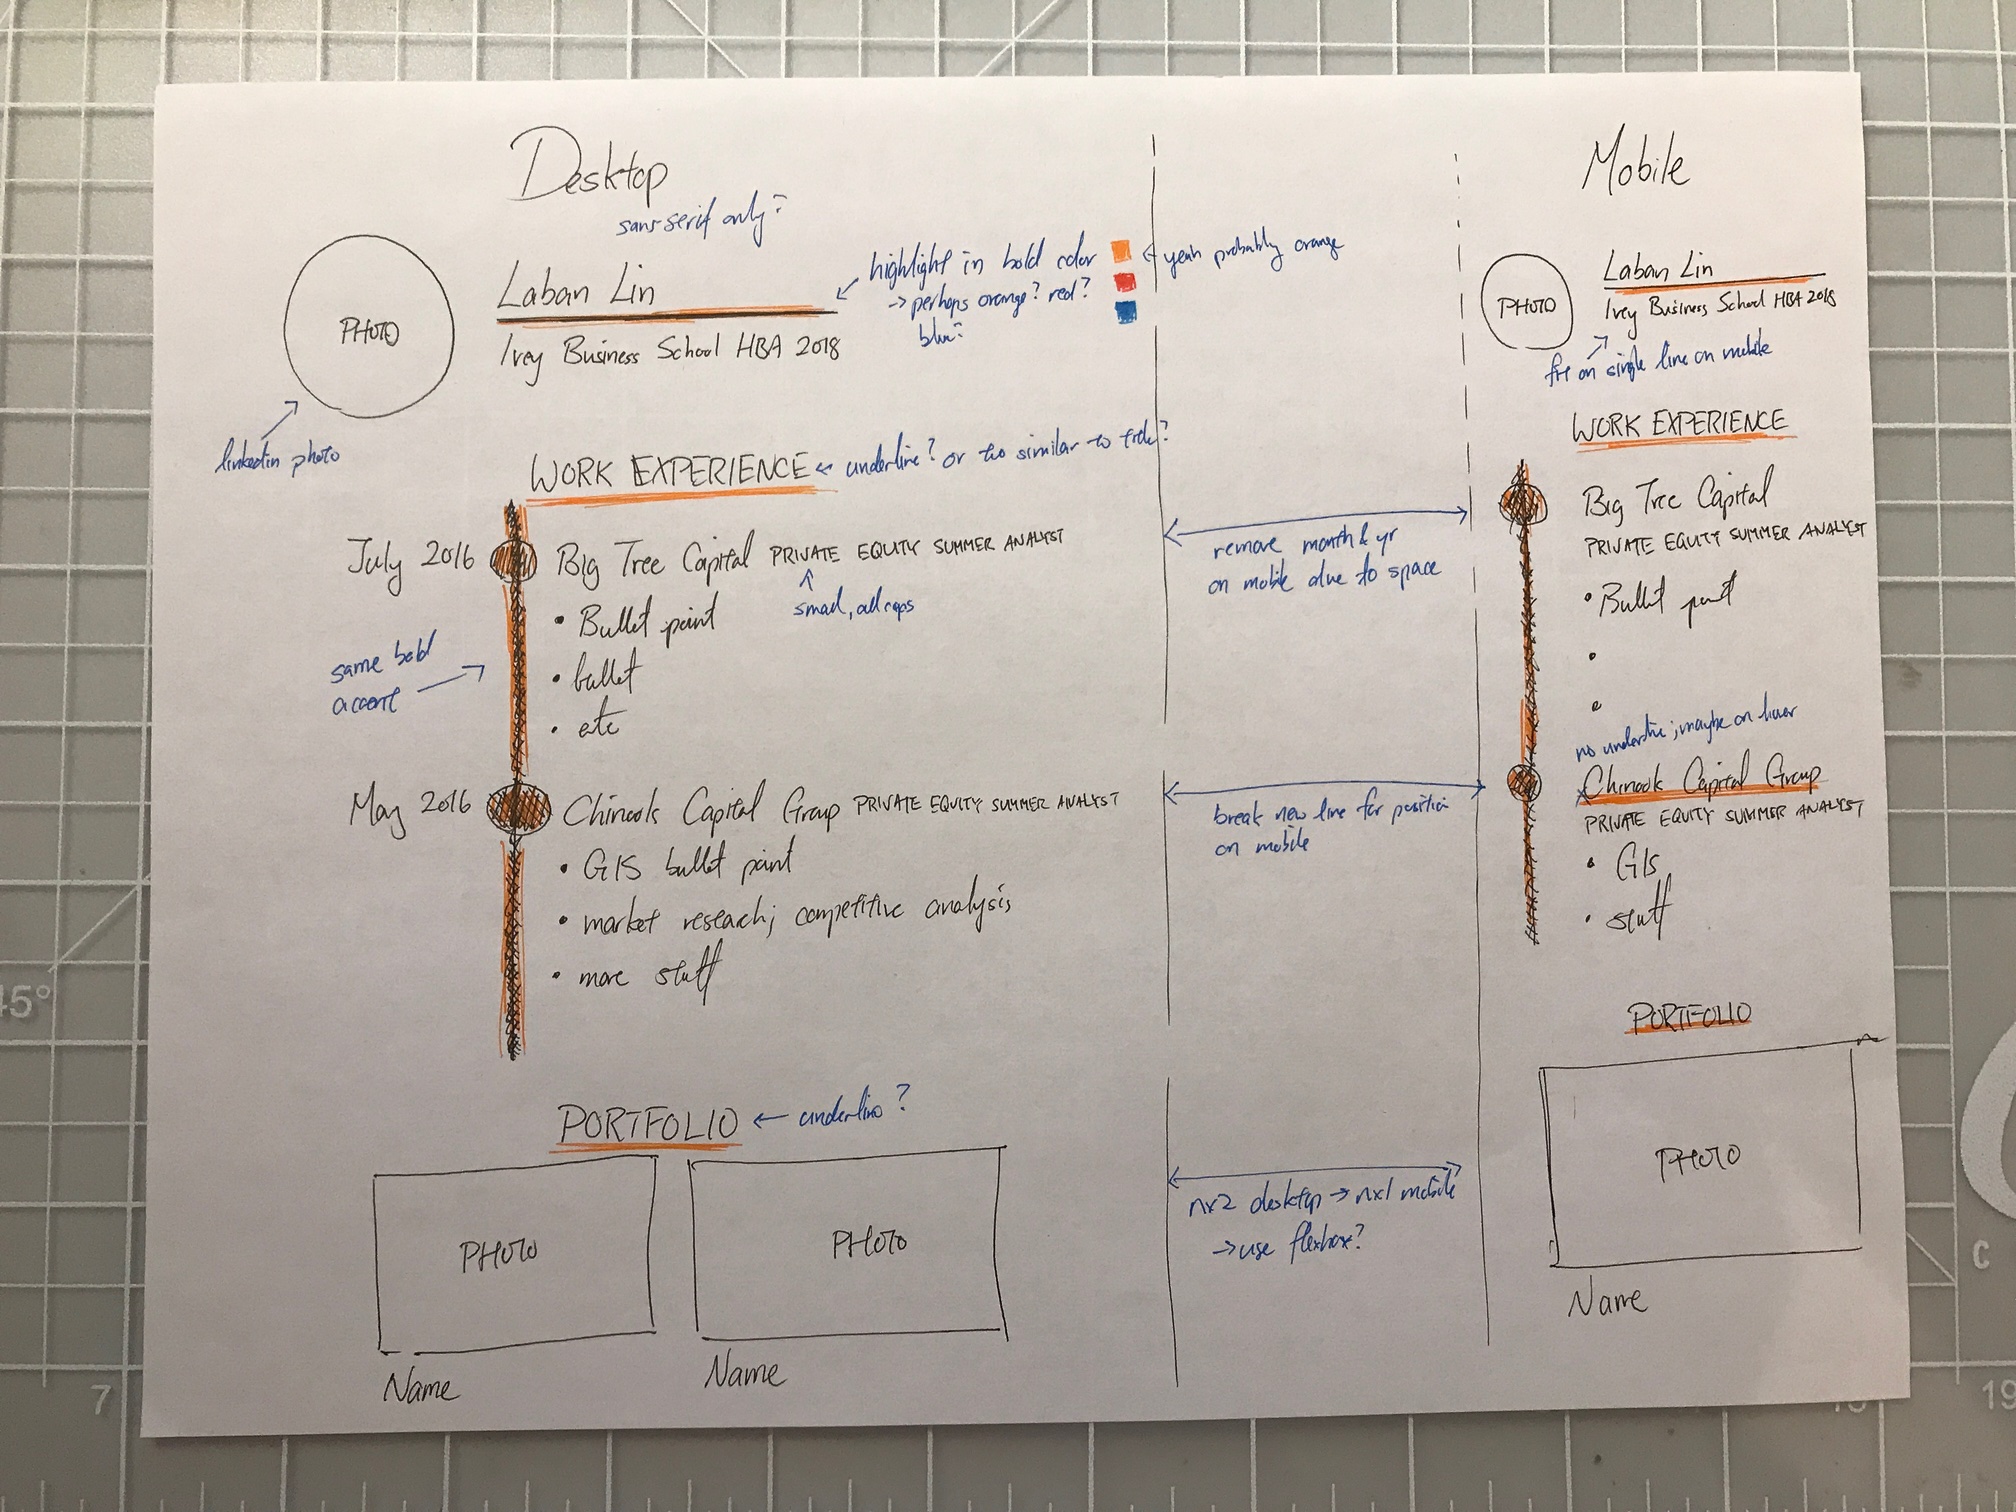 Desktop
sans-serif only?
PHOTO
Laban Lin
Ivey Business School HBA 2018
linkedin photo
highlight in bold color
-> perhaps orange? red?
blue?
<- yeah probably orange
WORK EXPERIENCE
<- underline? or too similar to title?
July 2016
Big Tree Capital PRIVATE EQUITY SUMMER ANALYST
small, all caps
• Bullet point
• bullet
• etc
same bold
accent
May 2016
Chinook Capital Group PRIVATE EQUITY SUMMER ANALYST
• GIS bullet point
• market research; competitive analysis
• more stuff
PORTFOLIO
<- underline?
PHOTO
PHOTO
Name
Name
remove month & yr
on mobile due to space
break new line for position
on mobile
nx2 desktop -> nx1 mobile
-> use flexbox?
Mobile
PHOTO
Laban Lin
Ivey Business School HBA 2018
fit on single line on mobile
WORK EXPERIENCE
Big Tree Capital
PRIVATE EQUITY SUMMER ANALYST
• Bullet point
•
•
no underline; maybe on hover
Chinook Capital Group
PRIVATE EQUITY SUMMER ANALYST
• GIS
• stuff
PORTFOLIO
PHOTO
Name
45°
7
C
15
19